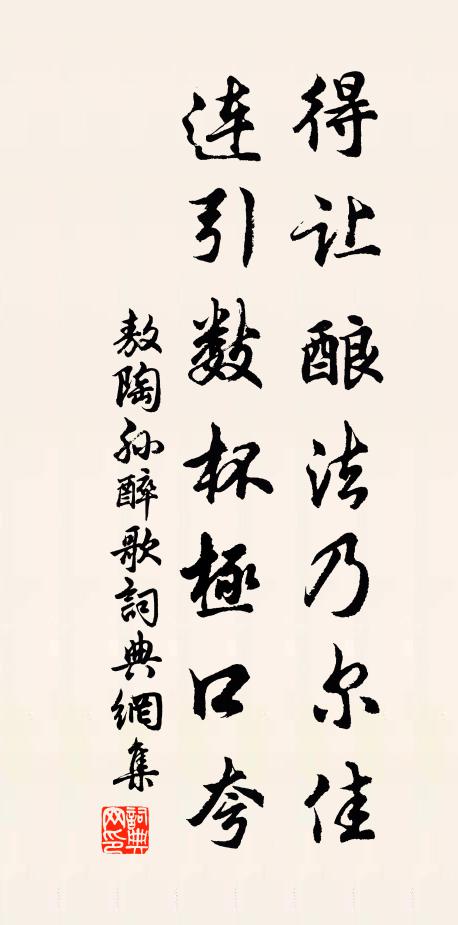 得让酿法乃尔佳
连引数杯極口夸
敖陶孙醉歌詞典網集
詞典网印